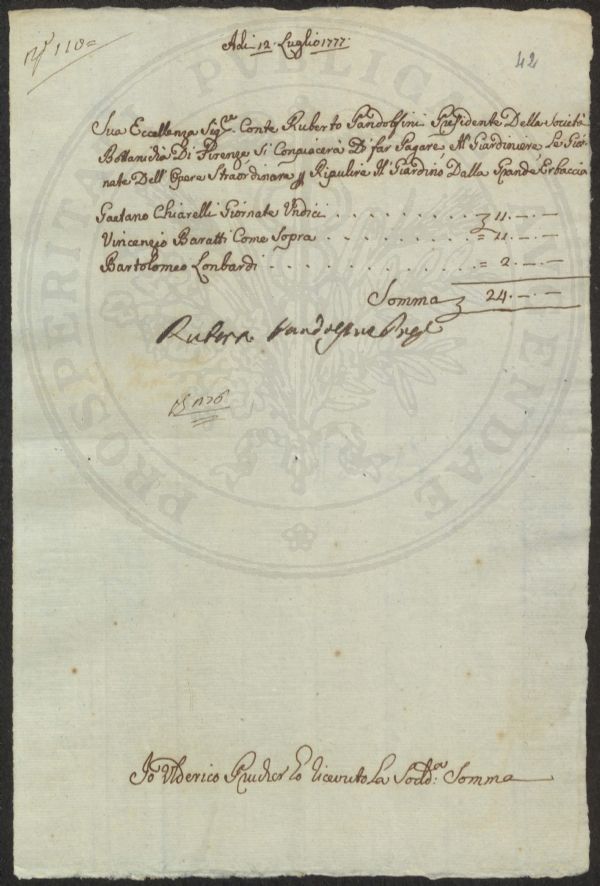 N° 110=
Adi 12. Luglio 1777.
42
Sua Eccellenza Sigre. Conte Ruberto Pandolfini Presidente Della Società
Bottanicha Di Firenze Si Conpiacerà Di far Pagare Al Giardiniere Le Gior-
nate Dell'Opere Straordinarie Ripulire Il Giardino Dalla Erbaccia
Gaetano Chiarelli Giornate Undici . . . . . . . . . 11.—.—
Vincenzio Baratti Come Sopra . . . . . . . . . = 11.—.—
Bartolomeo Lonbardi . . . . . . . . . = 2.—.—
Somma 24.—.—
Ruberto Pandolfini
Io Ulderico Prucker ho Ricevuto La Sodd.a Somma
PROSPERITATI PUBLICAE AUGENDAE